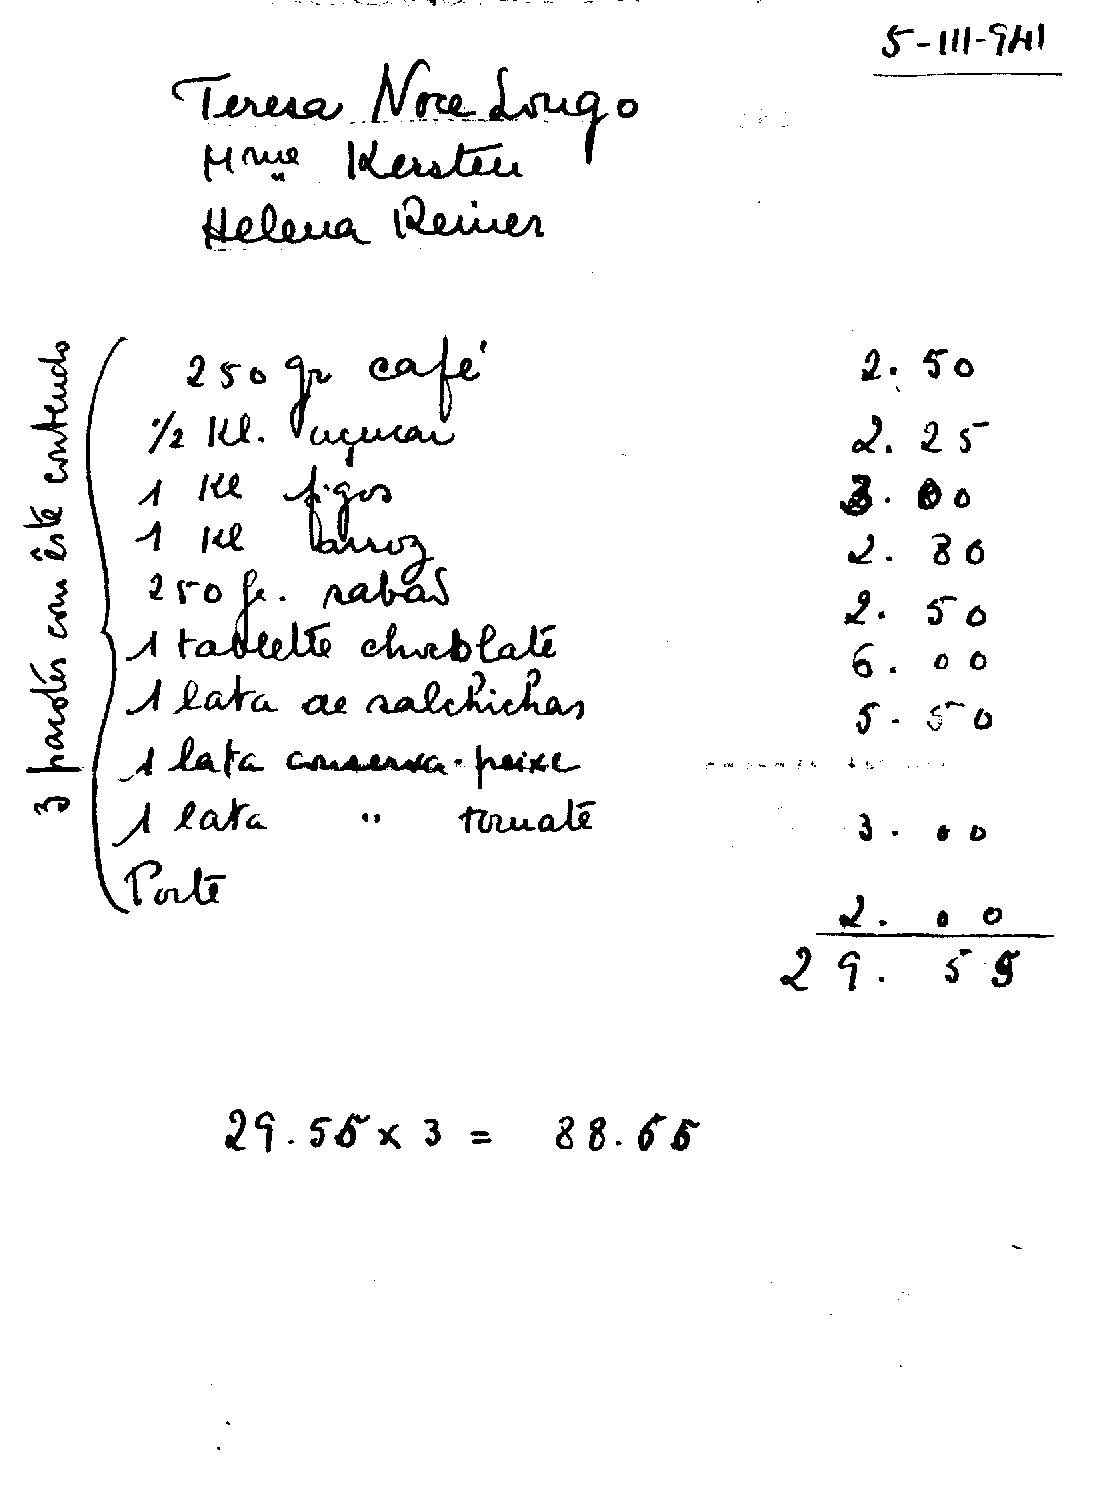 5-III-941
Teresa Noce Longo
Mme Kersten
Helena Reiner
3 pacotes com êste contendo
250 gr café 2.50
1/2 Kl. açucar 2.25
1 Kl figos 3.00
1 Kl arroz 2.80
250 gr. sabão 2.50
1 tablette chocolate 6.00
1 lata de salchichas 5.50
1 lata conserva-peixe
1 lata " tomate 3.00
Porte 2.00
29.55
29.55 x 3 = 88.65